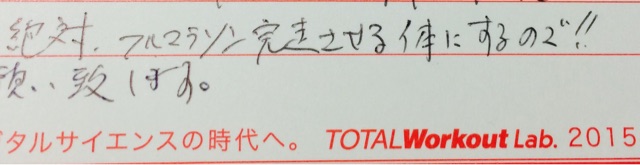 絶対、フルマラソン完走させる体にするので!!
願い致します。
タルサイエンスの時代へ。 TOTALWorkout Lab. 2015